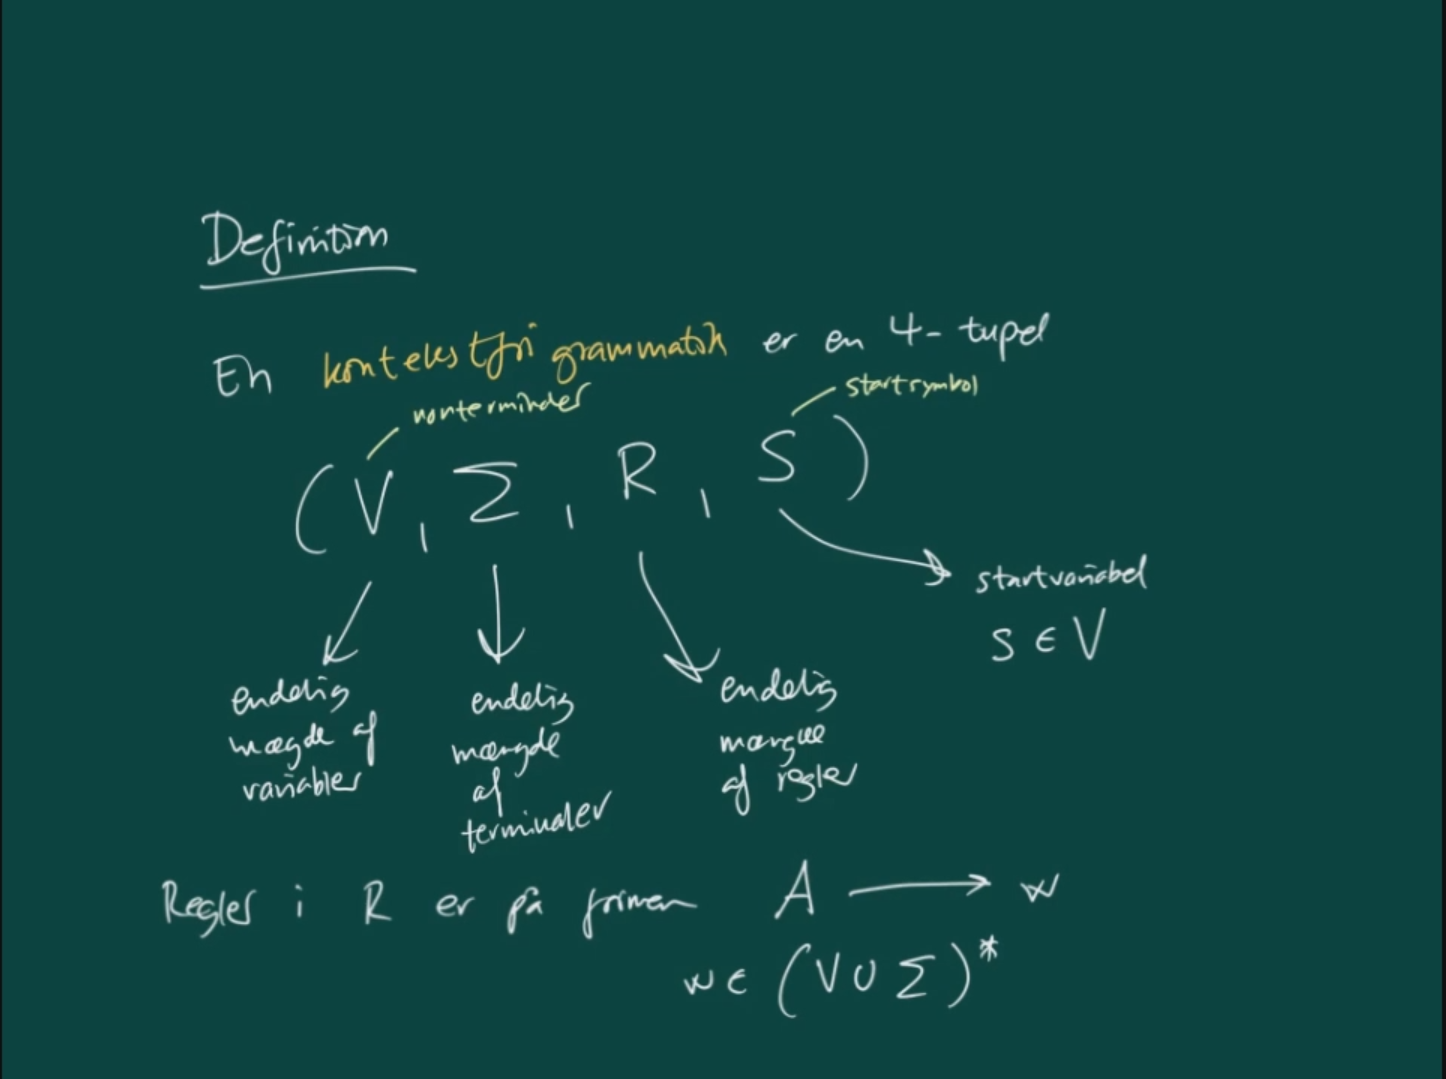 Definition
En kontekstfri grammatik er en 4-tupel
nonterminaler
startsymbol
(V, Σ, R, S)
startvariabel
S ∈ V
endelig
mægde af
variabler
endelig
mængde
af
terminaler
endelig
mængde
af regler
Regler i R er på formen A → w
w ∈ (V ∪ Σ)*